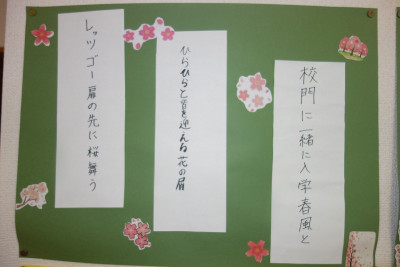 校門に一緒に入学春風と
ひらひらと を迎える花の
レッツゴー扉の先に桜舞う